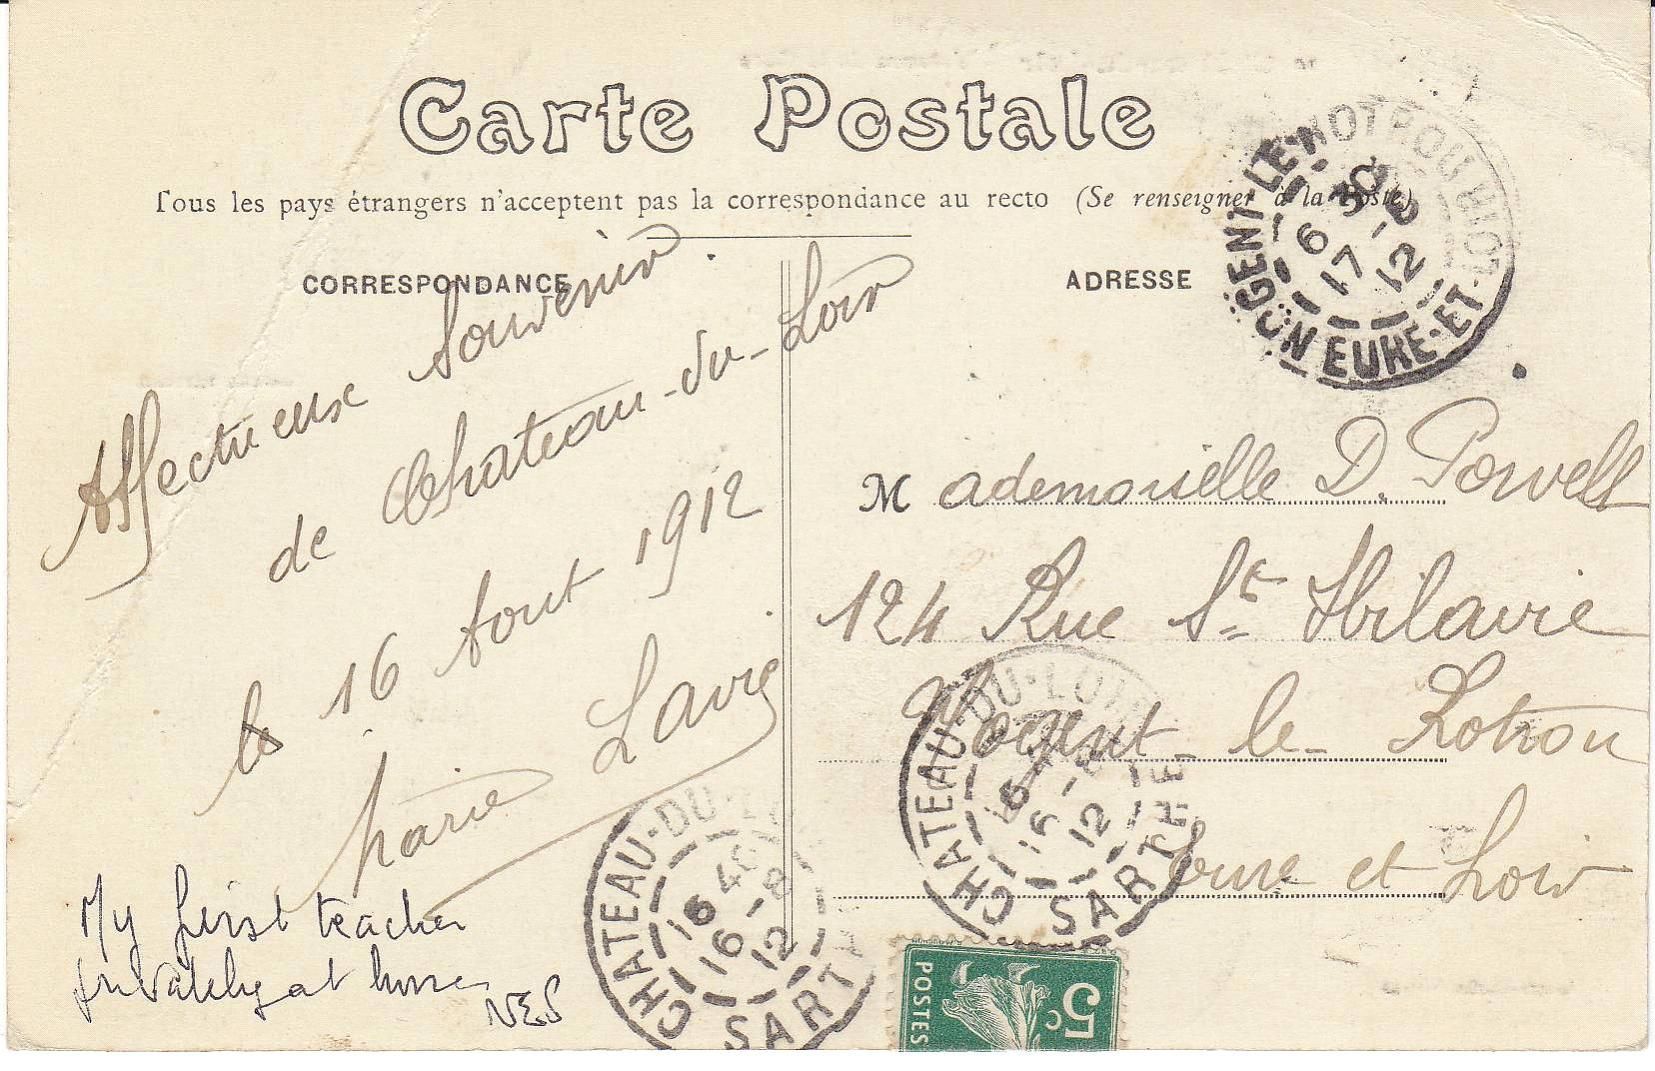 Carte Postale
Tous les pays étrangers n'acceptent pas la correspondance au recto (Se renseigner à la Poste)
CORRESPONDANCE
Affectueux Souvenir.
de Chateau-du-Loir
le 16 Aout 1912
Marie Lavie
My first teacher
privately at home
NES
ADRESSE
Mademoiselle D. Porvell
124 Rue St Hilaire
Nogent-le-Rotrou
Eure et Loir
NOGENT-LE-ROTROU
6 30
17-8
12
EURE-ET-LOIR
CHATEAU-DU-LOIR
16 40
16-8
12
SARTHE
CHATEAU-DU-
16 40
16-8
12
SARTH
POSTES
5c